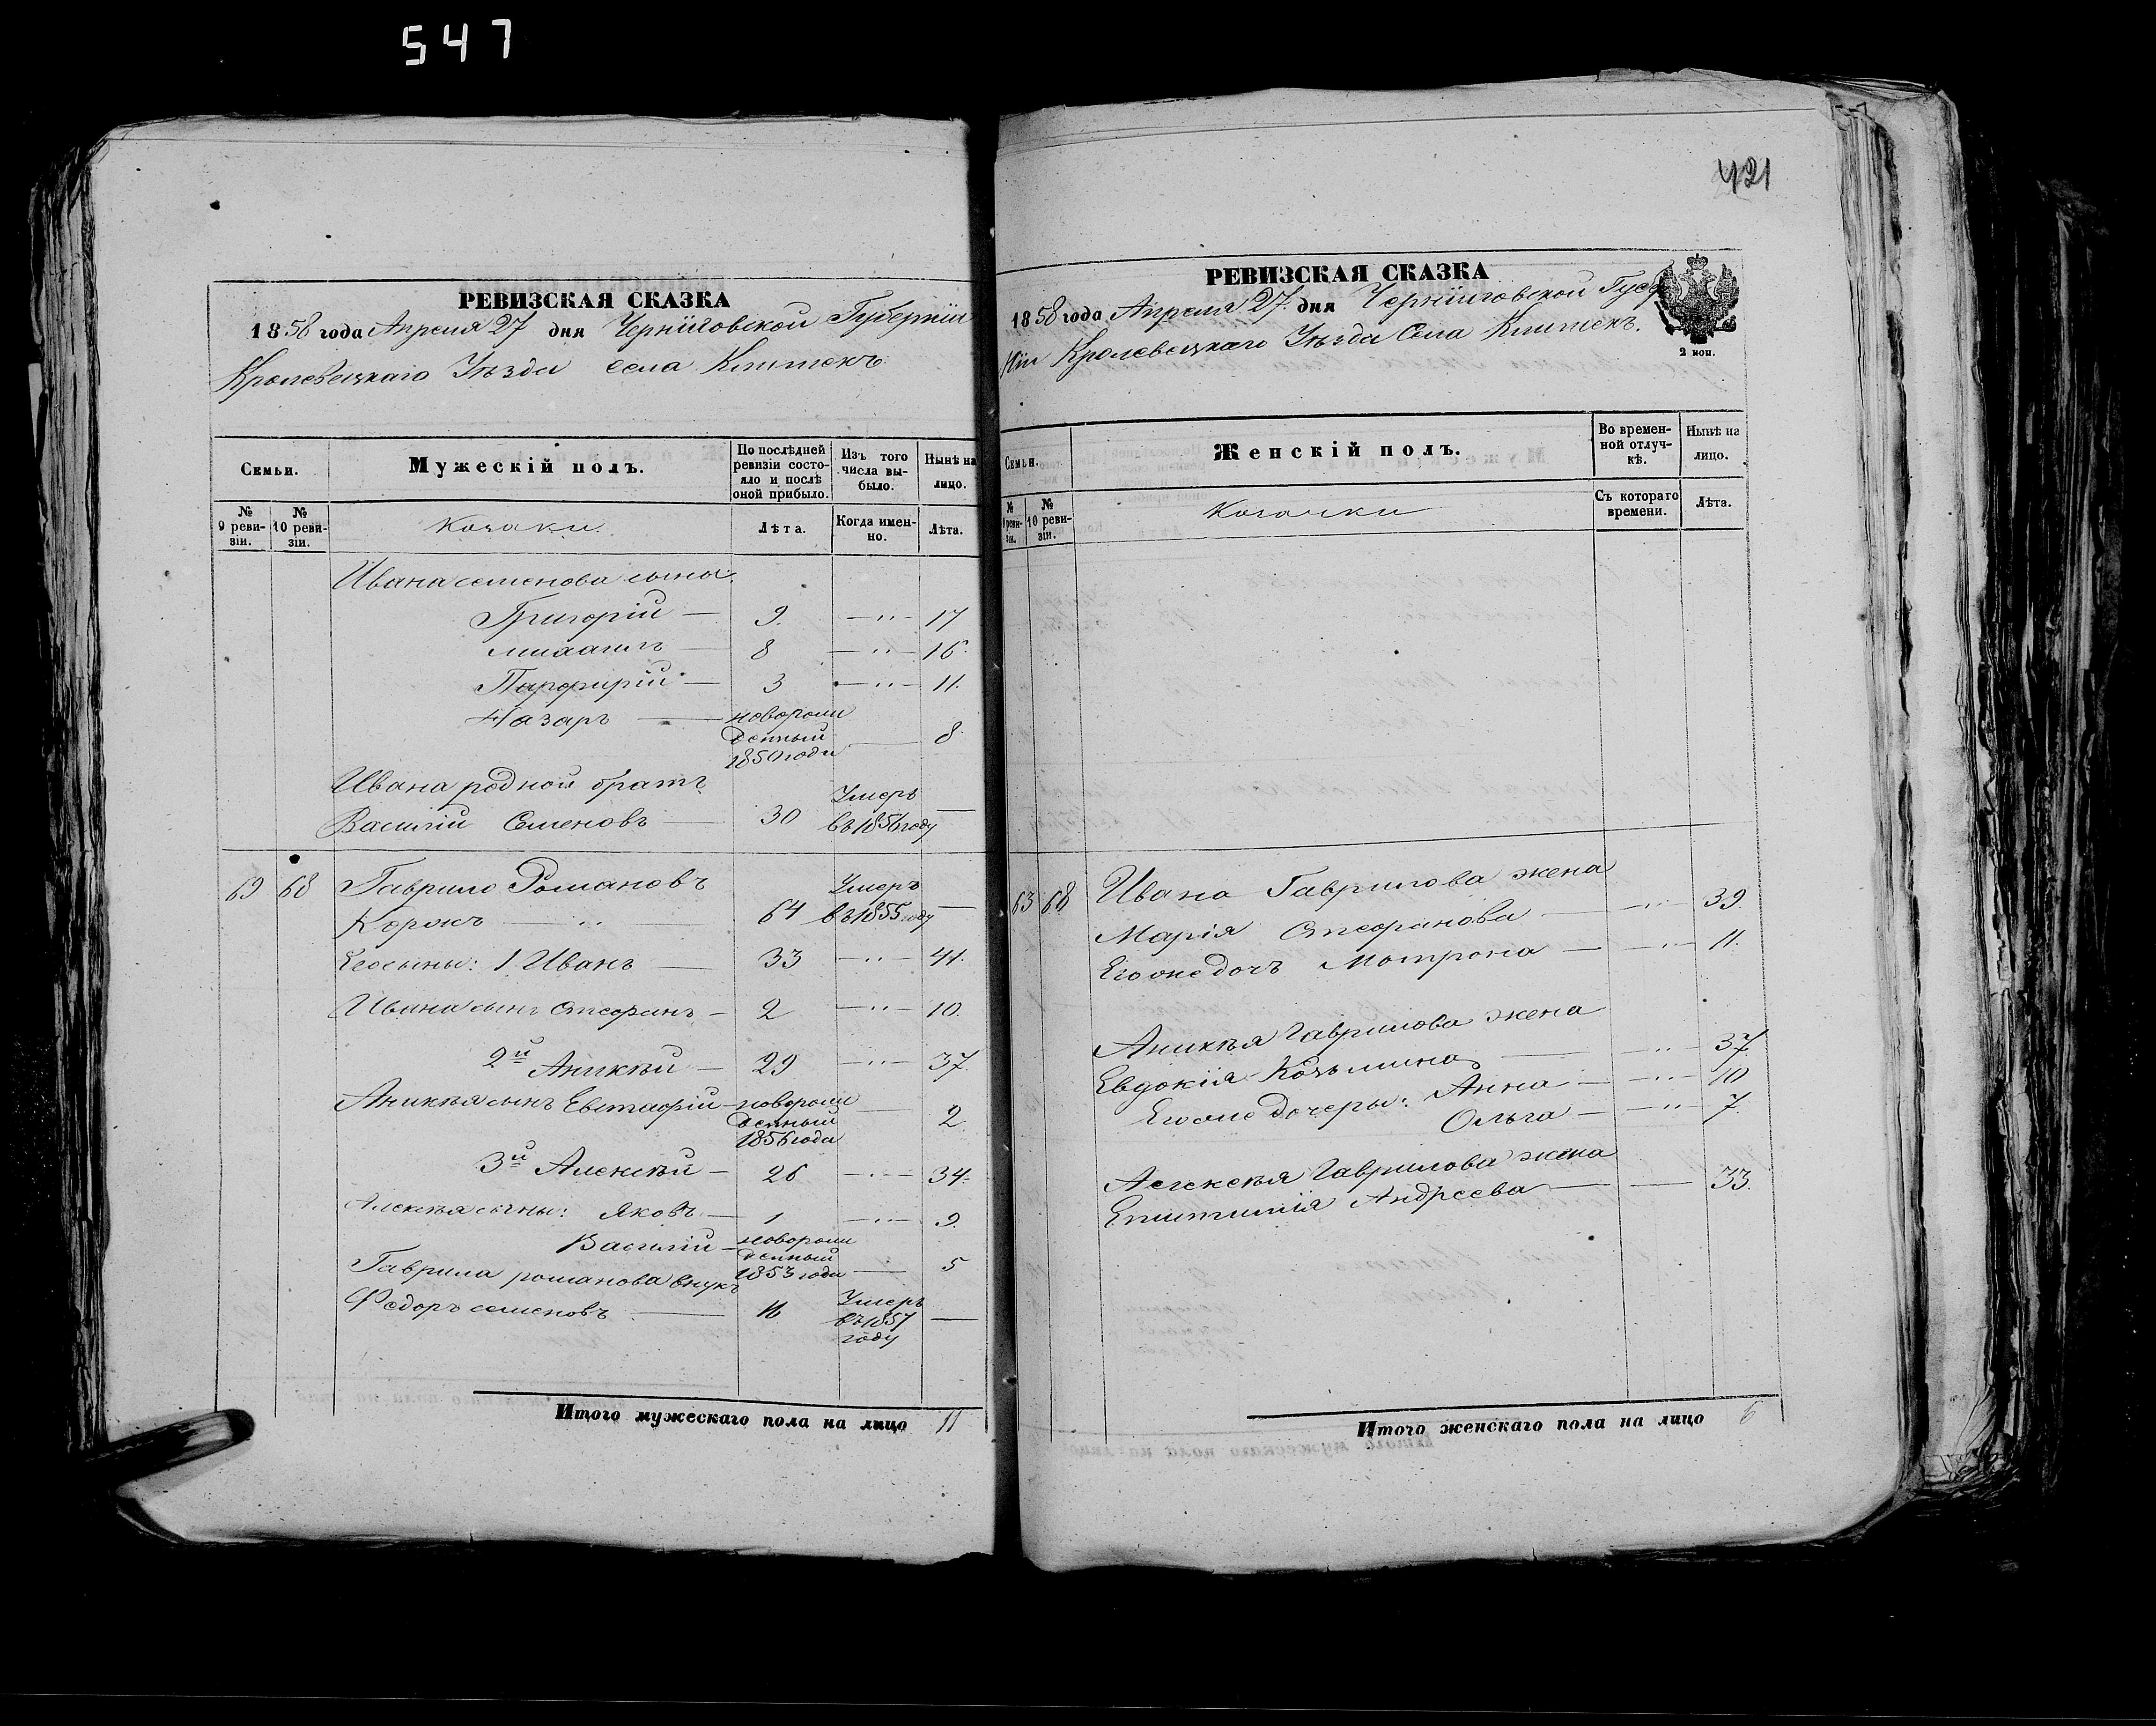 547
РЕВИЗСКАЯ СКАЗКА
1858 года Апреля 27 дня Черниговской Губерніи
Кролевецкаго Уѣзда села Клишекъ
Семьи.
Мужескій полъ.
По послѣдней ревизіи состояло и послѣ оной прибыло.
Изъ того числа выбыло.
Нынѣ на лицо.
№ 9 ревизіи.
№ 10 ревизіи.
Козаки.
Лѣта.
Когда именно.
Лѣта.
Ивана семенова сыны:
Григорій — 9. — „ — 17
Михаилъ — 8 — „ — 16.
Парфирій — 3 — „ — 11.
Назаръ — новорожденный 1850 года — 8
Ивана родной братъ
Василій Семеновъ — 30 Умеръ въ 1856 году —
69 68 Гаврило Романовъ
Коржъ — „ 64 Умеръ въ 1855 году —
Его сыны: 1 Иванъ — 33 — „ — 41.
Ивана сынъ Стефанъ — 2 — „ — 10.
2й Аникѣй — 29 — „ — 37.
Аникѣя сынъ Евстафій — новорожденный 1856 года — 2
3й Алексѣй — 26 — „ — 34.
Алексѣя сыны: Яковъ — 1 — „ — 9.
Василій — новорожденный 1853 года — 5
Гаврила романова внукъ
Федоръ семеновъ — 16 Умеръ въ 1857 году —
Итого мужескаго пола на лицо 11
421
РЕВИЗСКАЯ СКАЗКА
1858 года Апреля 27. дня Черниговской Губер
ніи Кролевецкаго Уѣзда Села Клишекъ.
2 коп.
Семьи.
Женскій полъ.
Во временной отлучкѣ.
Нынѣ на лицо.
№ 9 ревизіи.
№ 10 ревизіи.
Козачки
Съ котораго времени.
Лѣта.
63 68 Ивана Гаврилова жена
Марія Стефанова — — „ — 39.
Его же дочь Мотрона — — „ — 11.
Аникѣя Гаврилова жена
Евдокія Козьмина — — „ — 37
Его же дочеры: Анна — — „ — 10
Ольга — — „ — 7.
Алексѣя Гаврилова жена
Епистимія Андреева — — 33.
Итого женскаго пола на лицо 6